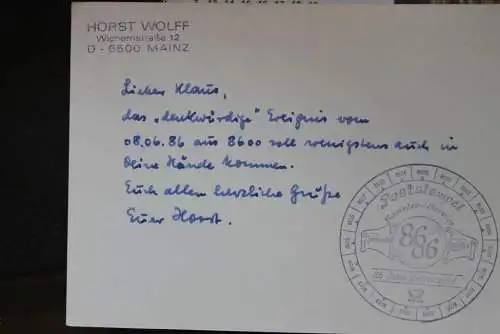 HORST WOLFF
Wichernstraße 12
D - 6500 MAINZ
Lieber Klaus,
das „denkwürdige" Ereignis vom
08.06.86 aus 8600 soll wenigstens auch in
Deine Hände kommen.
Euch allen herzliche Grüße
Euer Horst.
Poststempel
Sammler-Verein
86
86